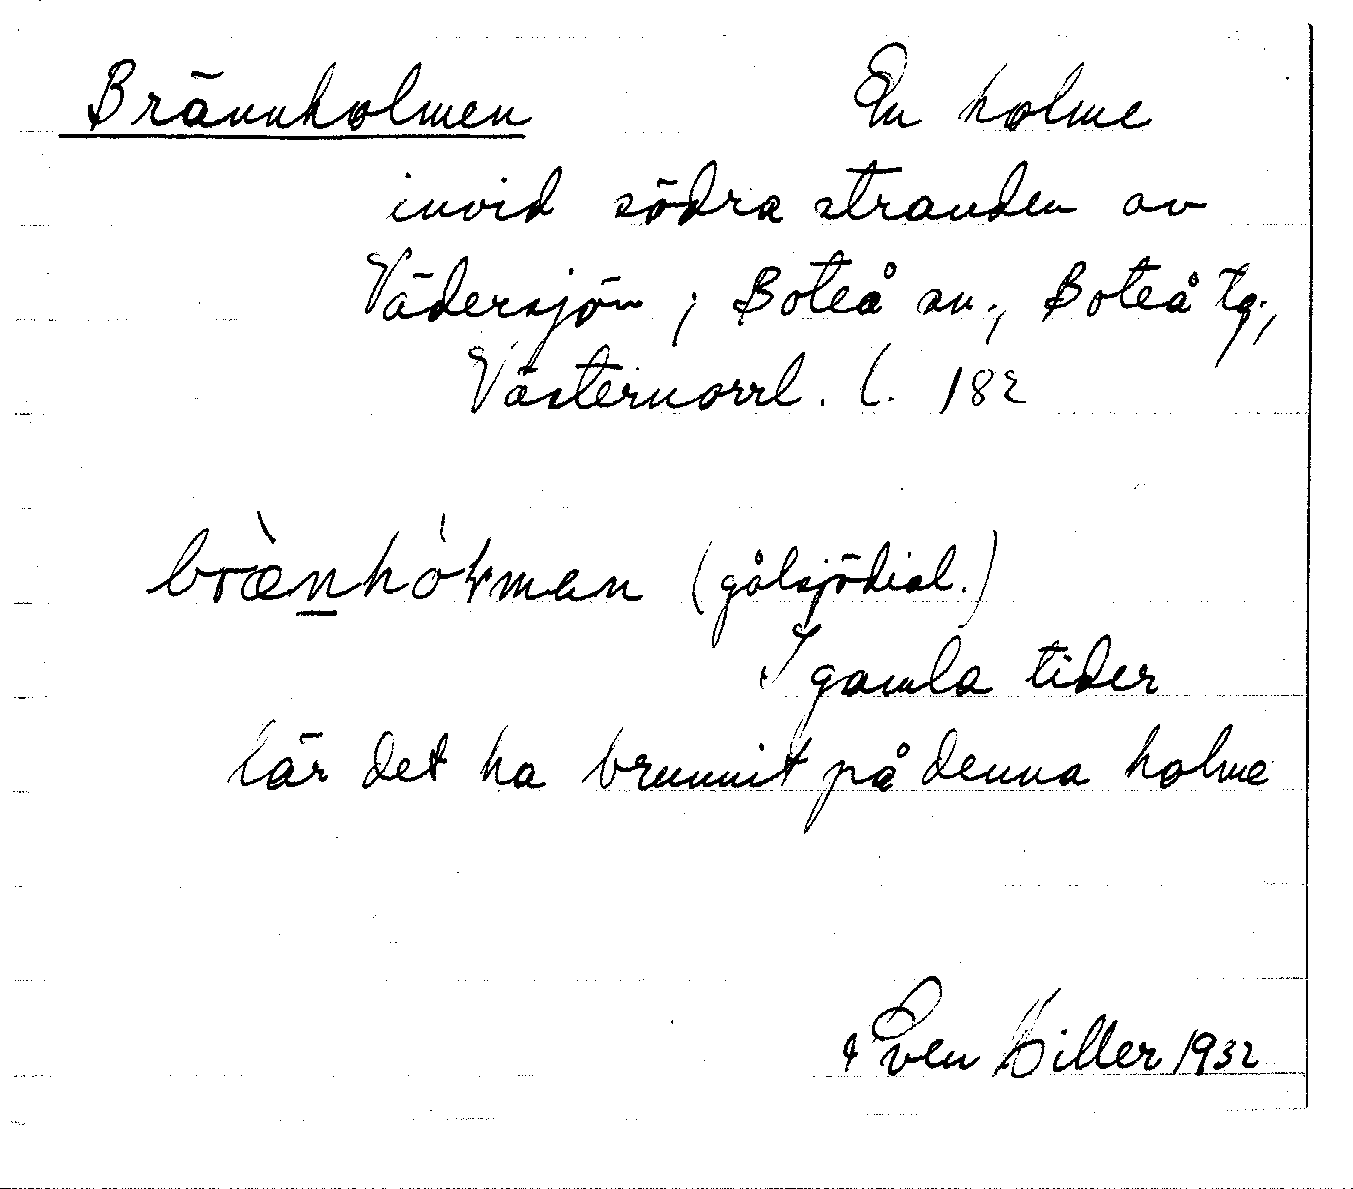 Brännholmen En holme
invid södra stranden av
Vädersjön, Boteå sn., Boteå tg.,
Västernorrl. l. 182
bræ̀n̲hóɫman (gålsjödial.)
I gamla tider
lär det ha brunnit på denna holme
Sven Hiller 1932